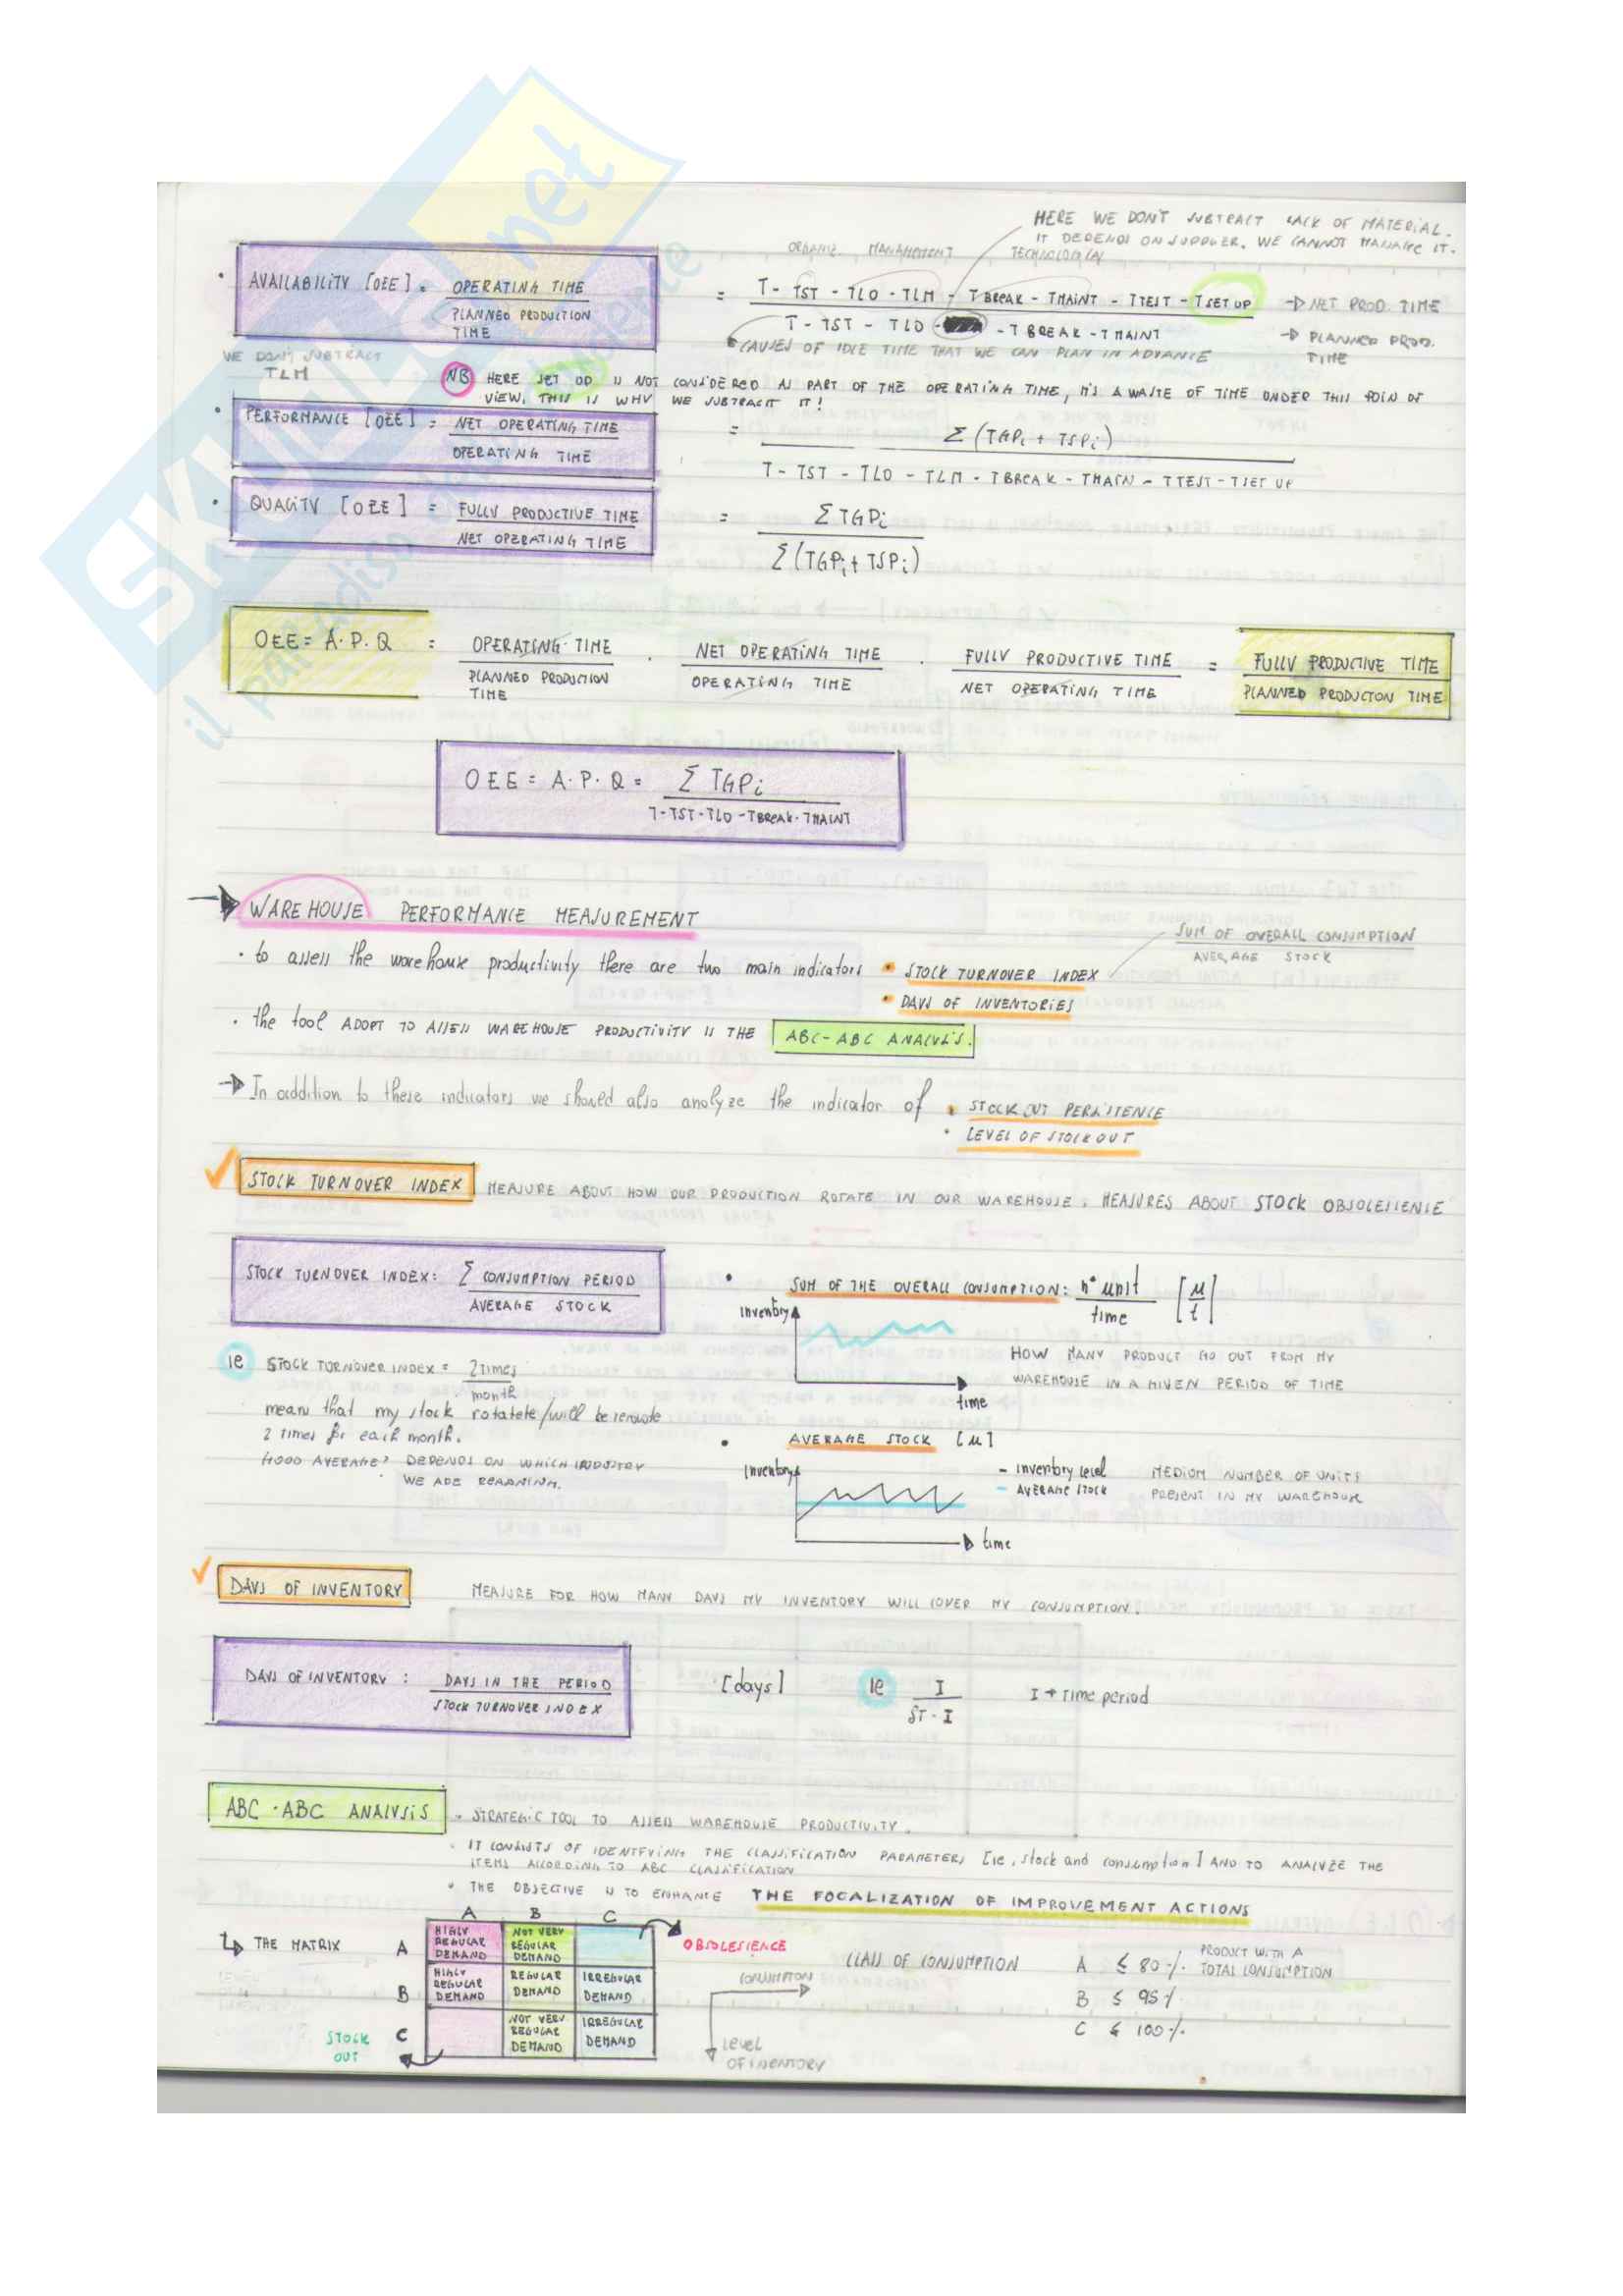 SKUOLA.net
il paradiso dello studente
HERE WE DON'T SUBTRACT LACK OF MATERIAL.
IT DEPENDS ON SUPPLIER, WE CANNOT MANAGE IT.
ORGANIZ. MANAGEMENT TECHNOLOGICAL
• AVAILABILITY [OEE] = OPERATING TIME / PLANNED PRODUCTION TIME
= T - TST - TLO - TLM - TBREAK - TMAINT - TTEST - TSET UP → NET PROD. TIME
T - TST - TLO - - TBREAK - TMAINT → PLANNED PROD. TIME
CAUSES OF IDLE TIME THAT WE CAN PLAN IN ADVANCE
WE DON'T SUBTRACT
TLM
NB HERE SET UP IS NOT CONSIDERED AS PART OF THE OPERATING TIME, IT'S A WASTE OF TIME UNDER THIS POIN OF
VIEW, THIS IS WHY WE SUBTRACT IT!
• PERFORMANCE [OEE] = NET OPERATING TIME / OPERATING TIME
= Σ(TGPi + TSPi) / T - TST - TLO - TLM - TBREAK - TMAIN - TTEST - TSET UP
• QUALITY [OEE] = FULLY PRODUCTIVE TIME / NET OPERATING TIME
= ΣTGPi / Σ(TGPi + TSPi)
OEE = A·P·Q = OPERATING TIME / PLANNED PRODUCTION TIME · NET OPERATING TIME / OPERATING TIME · FULLY PRODUCTIVE TIME / NET OPERATING TIME = FULLY PRODUCTIVE TIME / PLANNED PRODUCTON TIME
OEE = A·P·Q = Σ TGPi / T-TST-TLO-TBREAK-TMAINT
→ WAREHOUSE PERFORMANCE MEASUREMENT
• to assess the warehouse productivity there are two main indicators • STOCK TURNOVER INDEX
SUM OF OVERALL CONSUMPTION / AVERAGE STOCK
• DAYS OF INVENTORIES
• the tool ADOPT TO ASSESS WAREHOUSE PRODUCTIVITY IS THE ABC-ABC ANALYSIS.
→ In addition to these indicators we should also analyze the indicator of • STOCK OUT PERSISTENCE
• LEVEL OF STOCKOUT
✓ STOCK TURNOVER INDEX MEASURE ABOUT HOW OUR PRODUCTION ROTATE IN OUR WAREHOUSE. MEASURES ABOUT STOCK OBSOLESCENCE
STOCK TURNOVER INDEX: Σ CONSUMPTION PERIOD / AVERAGE STOCK
• SUM OF THE OVERALL CONSUMPTION: n° unit / time [u/t]
inventory
HOW MANY PRODUCT GO OUT FROM MY
WAREHOUSE IN A GIVEN PERIOD OF TIME
time
ie STOCK TURNOVER INDEX = 2 times / month
means that my stock rotatete/will be renovate
2 times for each month.
GOOD AVERAGE? DEPENDS ON WHICH INDUSTRY
WE ARE REGARDING.
• AVERAGE STOCK [u]
inventory
- inventory level
- AVERAGE STOCK
MEDIUM NUMBER OF UNITS
PRESENT IN MY WAREHOUSE
time
✓ DAYS OF INVENTORY MEASURE FOR HOW MANY DAYS MY INVENTORY WILL COVER MY CONSUMPTION.
DAYS OF INVENTORY: DAYS IN THE PERIOD / STOCK TURNOVER INDEX
[days] ie I / ST·I I → Time period
ABC·ABC ANALYSIS • STRATEGIC TOOL TO ASSESS WAREHOUSE PRODUCTIVITY.
• IT CONSISTS OF IDENTFYING THE CLASSIFICATION PARAMETERS [ie, stock and consumption] AND TO ANALYZE THE
ITEMS ACCORDING TO ABC CLASSIFICATION
• THE OBJECTIVE IS TO ENHANCE THE FOCALIZATION OF IMPROVEMENT ACTIONS
↳ THE MATRIX
A B C
A HIGLY REGULAR DEMAND NOT VERY REGULAR DEMAND
OBSOLESCENCE
B HIGLY REGULAR DEMAND REGULAR DEMAND IRREGULAR DEMAND
C NOT VERY REGULAR DEMAND IRREGULAR DEMAND
STOCK
OUT
CONSUMPTION
LEVEL
OF INENTORY
CLASS OF CONSUMPTION A ≤ 80% PRODUCT WITH A
TOTAL CONSUMPTION
B ≤ 95%
C ≤ 100%